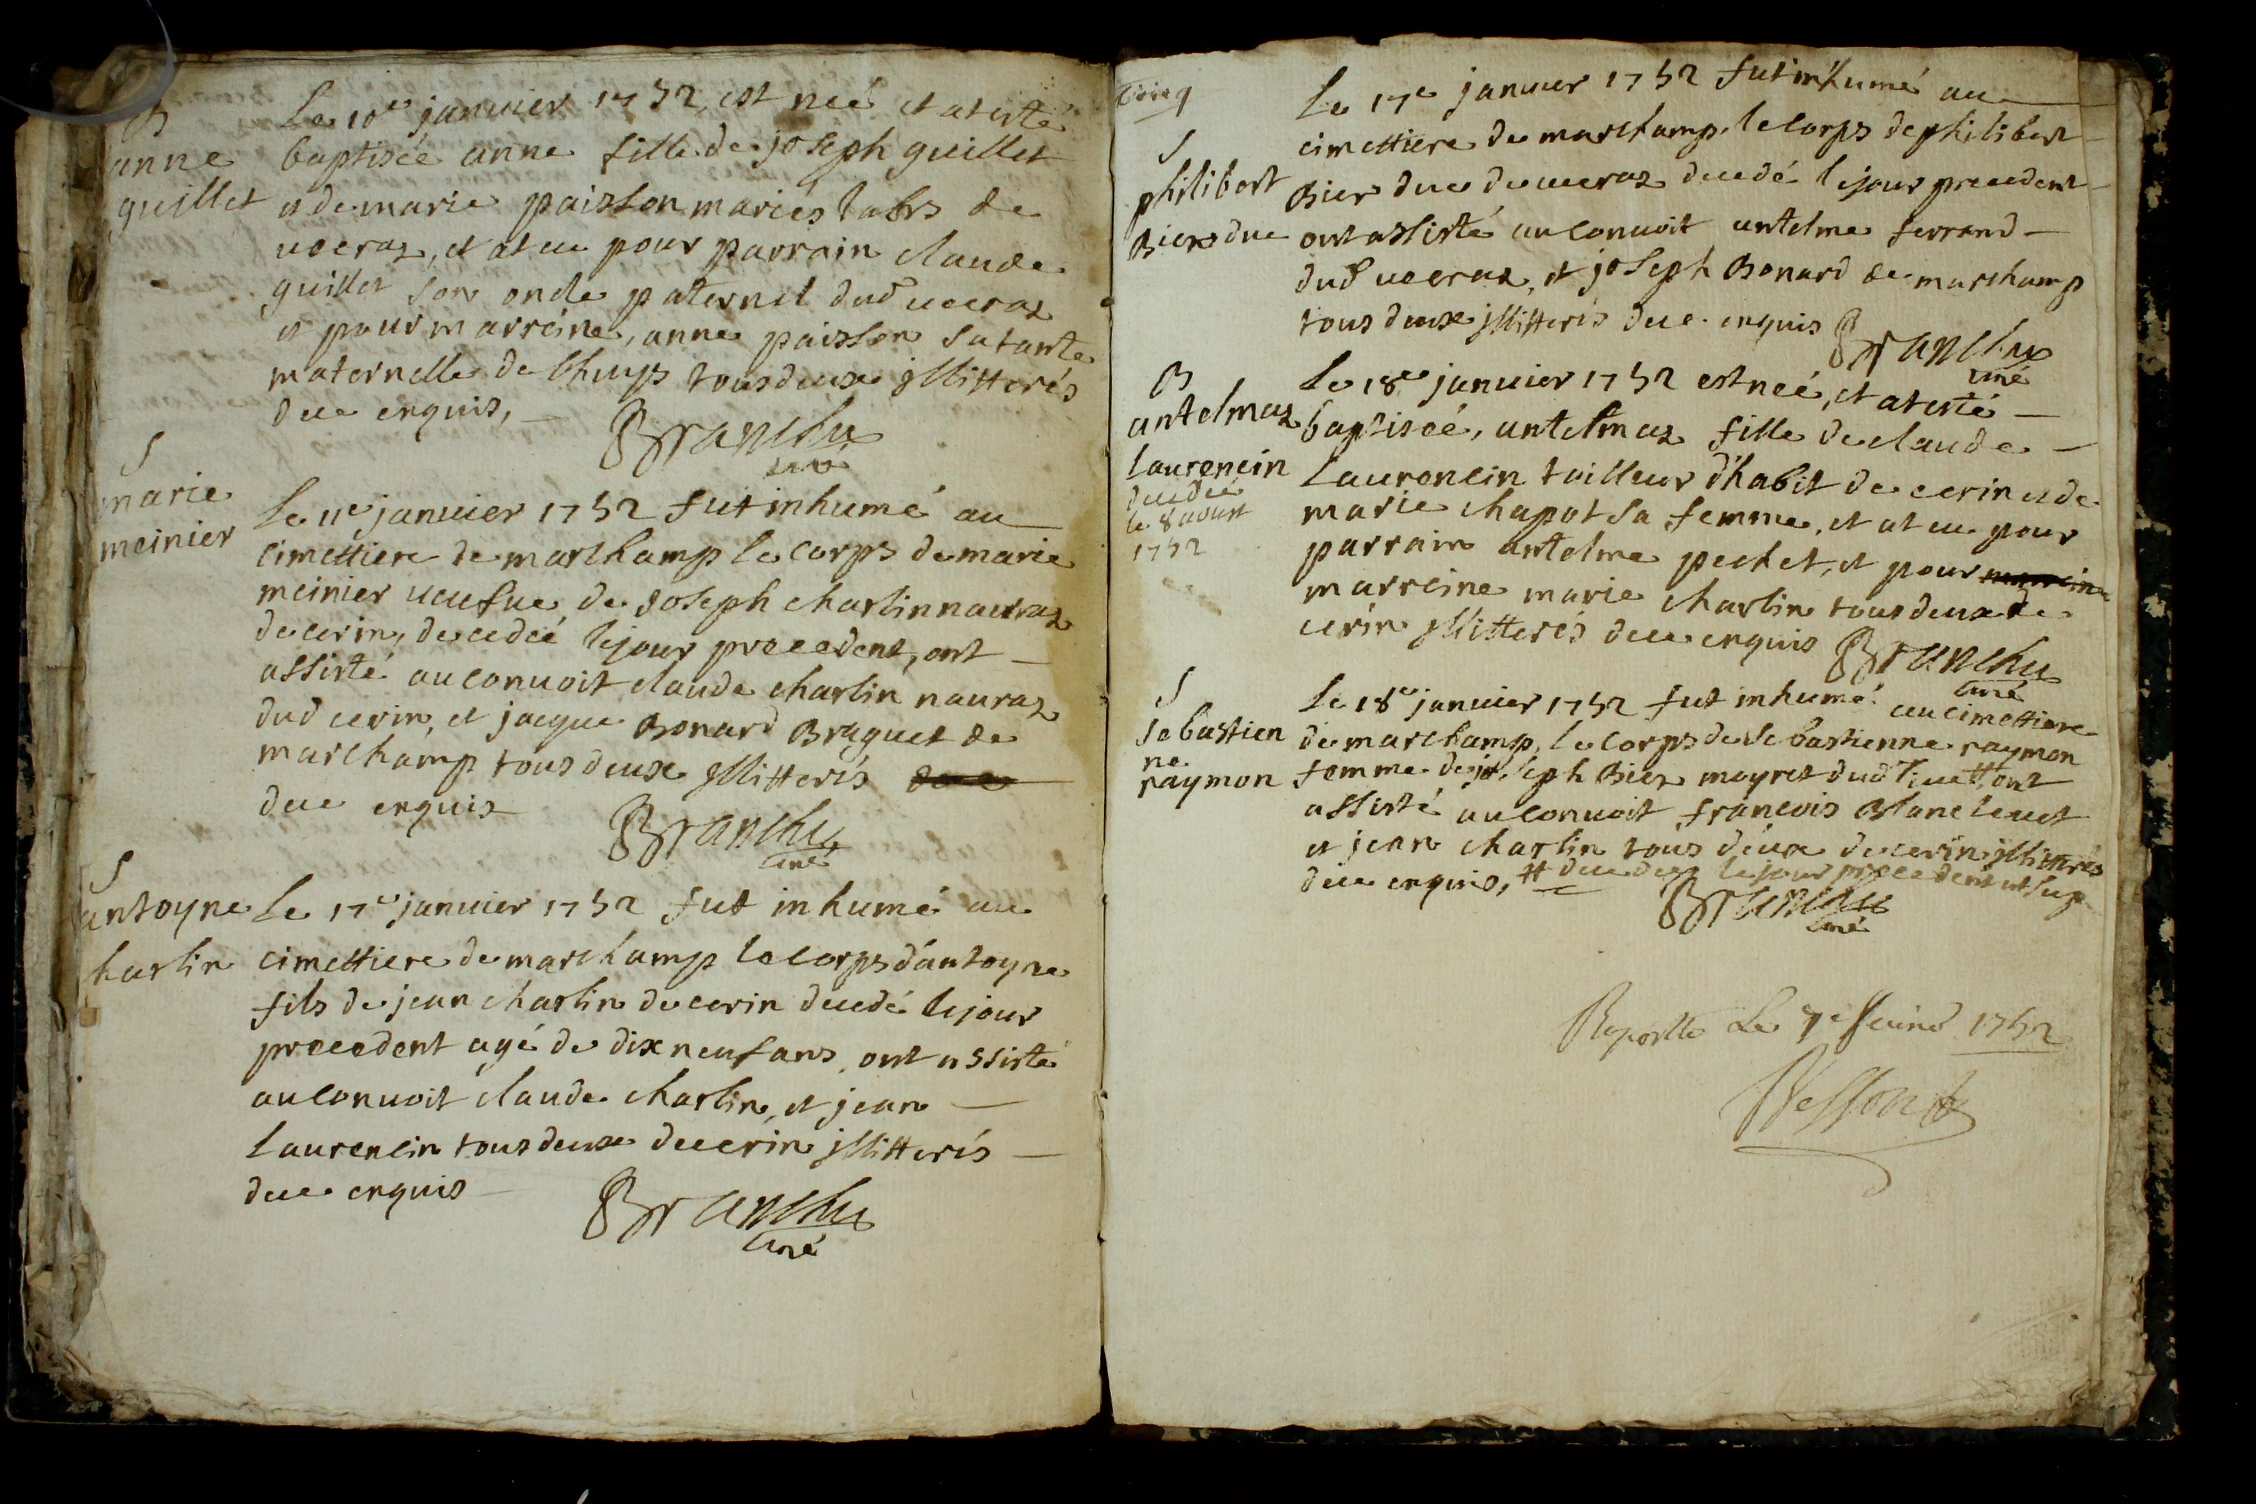 B
anne
guillet
Le 10e janvier 1752 est neé et at esté
baptiseé anne fille de joseph guillet
et de marie paisson mariés labrs de
veeraz, et at eu pour parrain claude
guillet son oncle paternel dud veeraz
et pour marreine, anne paisson sa tante
maternelle de lhuys tous deux jllitterés
dece enquis,
Branchu
curé
S
marie
meinier
Le 11e janvier 1752 fut inhumé au
cimettiere de marchamp le corps de marie
meinier veufue de joseph charlin nauraz
de cerin, decedeé le jour precedent, ont
assisté au convoit claude charlin nauraz
dud cerin, et jacque Bonard Braguet de
marchamp tous deux jllitterés
dece enquis
Branchu
curé
S
antoyne
charlin
Le 17e janvier 1752 fut inhumé au
cimettiere de marchamp le corps d'antoyne
fils de jean charlin de cerin decedé le jour
precedent agé de dix neuf ans, ont assisté
au convoit claude charlin, et jean
laurencin tous deux de cerin jllitterés
dece enquis
Branchu
curé
cinq
S
philibert
Bier duc
Le 17e janvier 1752 fut inhumé au
cimettiere de marchamp le corps de philibert
Bier duc de veeraz decedé le jour precedent
ont assisté au convoit antelme ferrand
dud veeraz, et joseph Bonard de marchamp
tous deux jllitterés dece enquis
Branchu
curé
B
antelmaz
laurencin
decedeé
le 8 aoust
1752
Le 18e janvier 1752 est neé, et at esté
baptiseé, antelmaz fille de claude
laurencin tailleur d'habit de cerin et de
marie chapot sa femme, et at eu pour
parrain antelme pechet, et pour
marreine marie charlin tous deux de
cerin jllitterés dece enquis
Branchu
curé
S
sebastien
ne
raymon
Le 18e janvier 1752 fut inhumé au cimettiere
de marchamp, le corps de sebastienne raymon
femme de joseph Bier mayret dud lieu # ont
assisté au convoit francois Blanc levet
et jean charlin tous deux de cerin jllitterés
dece enquis, # decedeé le jour precedent ut sup
Branchu
curé
Reportté Le 7e feurier 1752